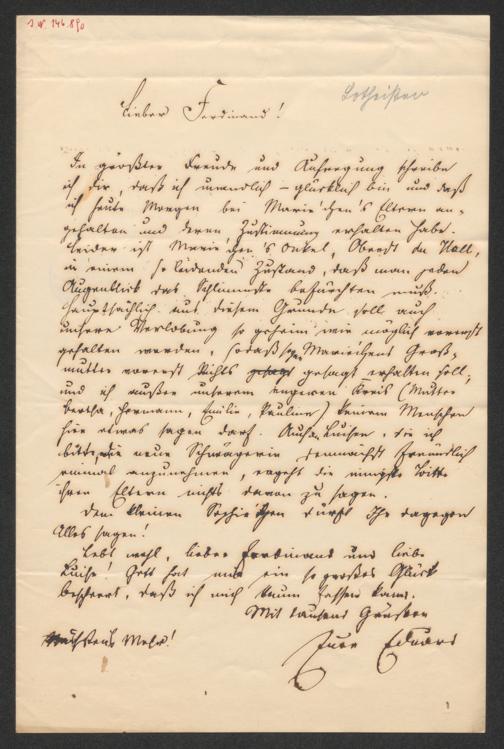 I.N. 146.890
Lotheisen
Lieber Ferdinand!
In größter Freude und Aufregung schreibe
ich Dir, daß ich unendlich – glücklich bin und daß
ich heute Morgen bei Marie'chen's Eltern an-
gehalten und deren Zustimmung erhalten habe.
Leider ist Marie'chen's Onkel, Oberst du Hall,
in einem so leidenden Zustand, daß man jeden
Augenblick das Schlimmste befürchten muß.
Hauptsächlich aus diesem Grunde soll auch
unsere Verlobung so geheim wie möglich vorerst
gehalten werden, sodaß Mariechens Groß-
mutter vorerst Nichts gesagt erhalten soll;
und ich außer unserem engeren Kreis (Mutter
Bertha, Hermann, Emilie, Pauline) keinem Menschen
hier etwas sagen darf. Auch Luisen, die ich
bitte, die neue Schwägerin demnächst freundlich
einmal anzunehmen, ergeht die innigste Bitte
ihren Eltern nichts davon zu sagen.
Dem kleinen Sophiechen dürft Ihr dagegen
Alles sagen!
Lebt wohl, lieber Ferdinand und liebe
Luise! Gott hat mir ein so großes Glück
bescheert, daß ich mich kaum fassen kann.
Mit tausend Grüßen
Nächstens Mehr!
Euer Eduard